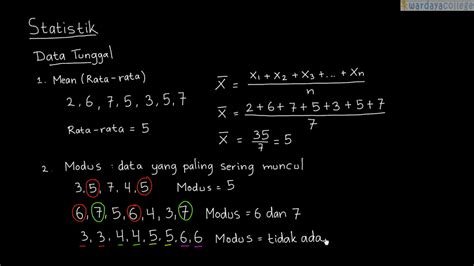 wardayacollege
Statistik
Data Tunggal
1. Mean (Rata-rata)
2, 6, 7, 5, 3, 5, 7
Rata-rata = 5
X̄ = (X₁ + X₂ + X₃ + ... + Xₙ) / n
X̄ = (2 + 6 + 7 + 5 + 3 + 5 + 7) / 7
X̄ = 35 / 7 = 5
2. Modus : data yang paling sering muncul
3, 5, 7, 4, 5 Modus = 5
6, 7, 5, 6, 4, 3, 7 Modus = 6 dan 7
3, 3, 4, 4, 5, 5, 6, 6 Modus = tidak ada